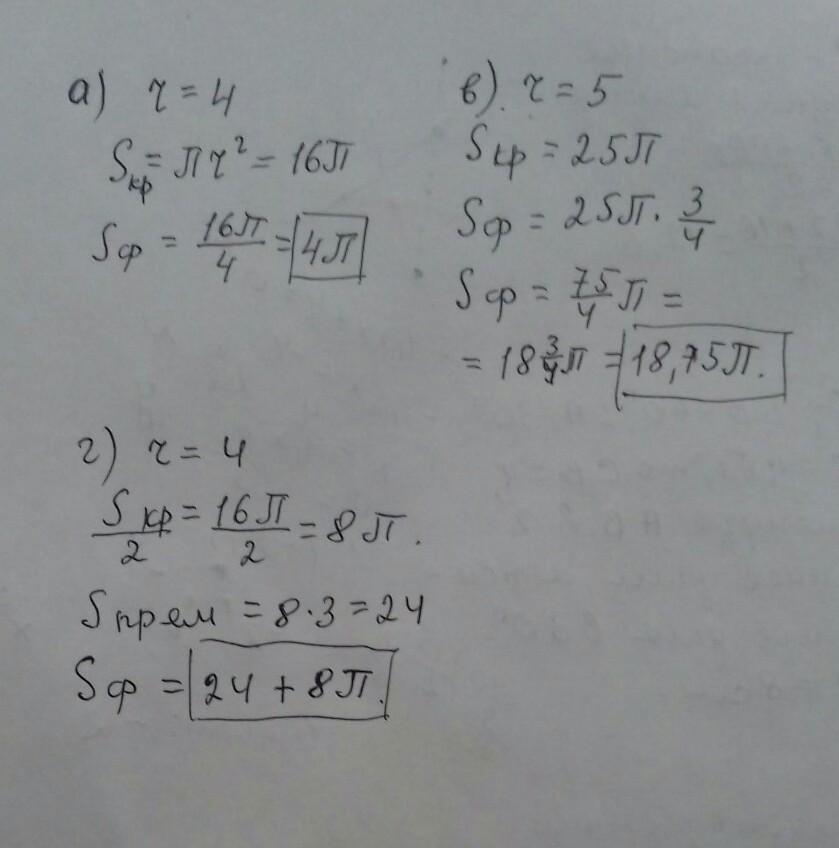 а) r = 4
Sкр = πr² = 16π
Sф = 16π/4 = 4π
в) r = 5
Sкр = 25π
Sф = 25π · 3/4
Sф = 75/4 π =
= 18 3/4 π = 18,75π.
г) r = 4
Sкр/2 = 16π/2 = 8π.
Sпрям = 8·3 = 24
Sф = 24 + 8π.